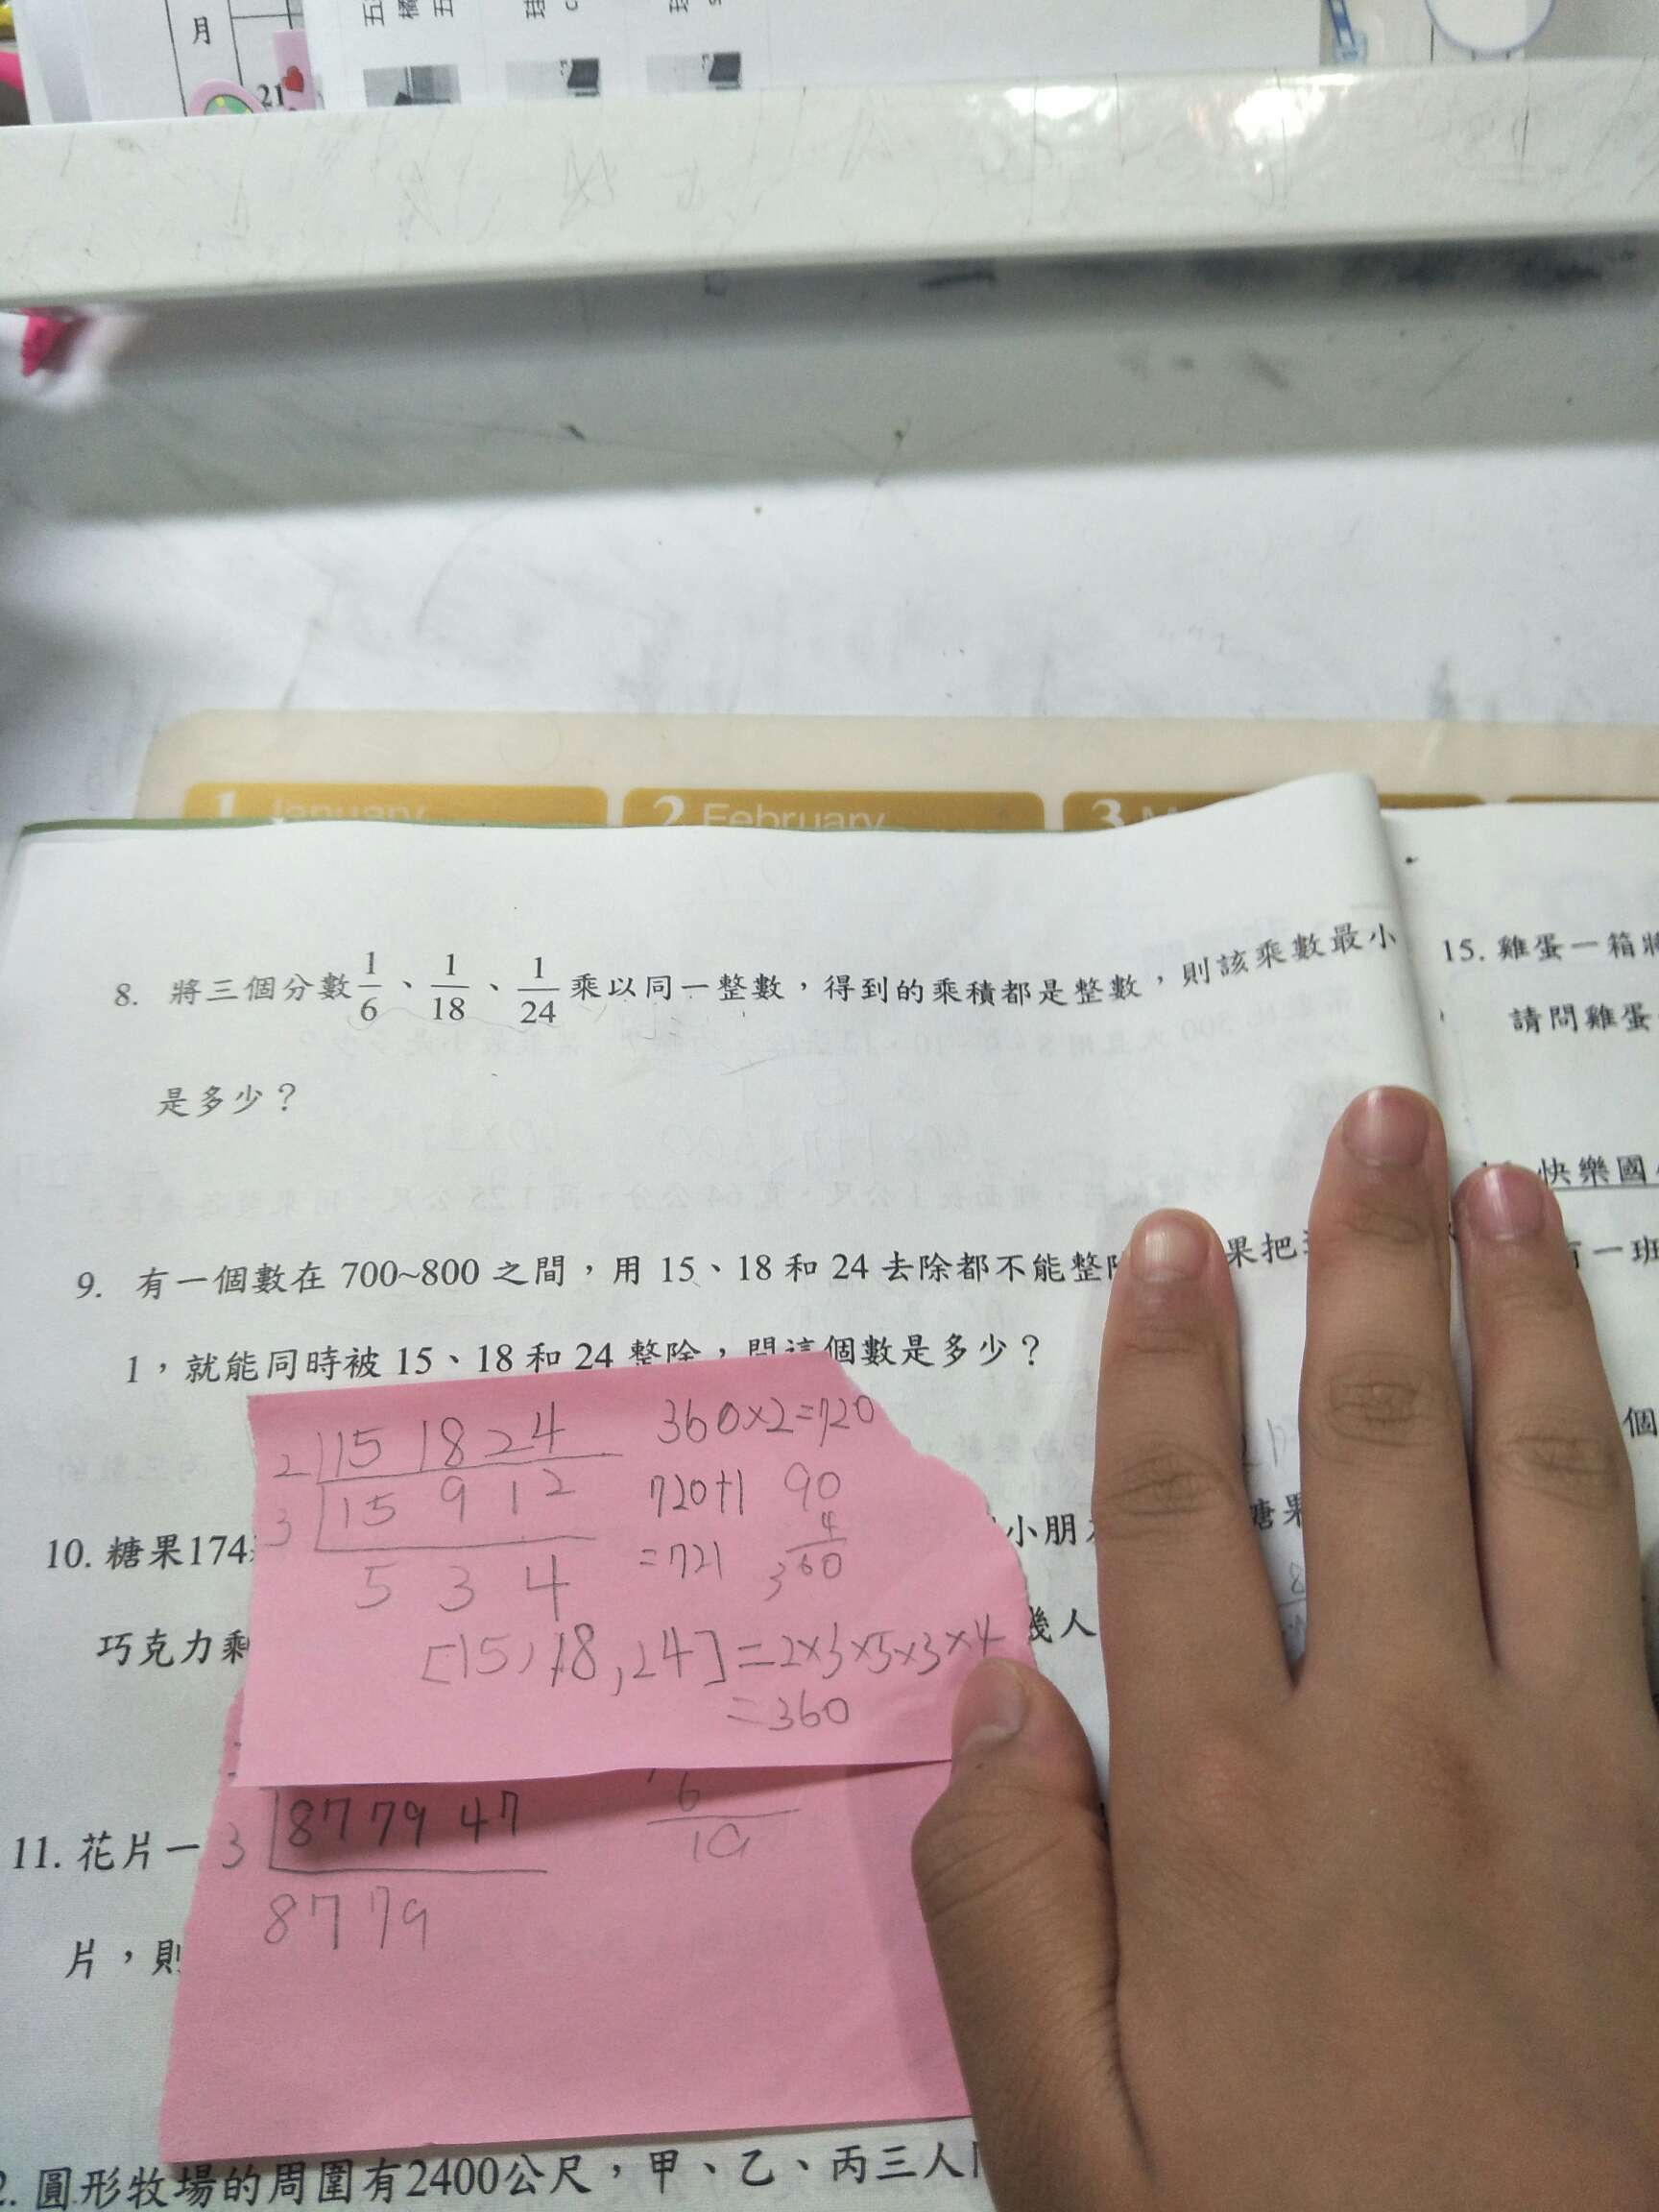 月
21
1 January
2 February
3 M
8. 將三個分數 1/6、1/18、1/24 乘以同一整數，得到的乘積都是整數，則該乘數最小
是多少？
9. 有一個數在 700~800 之間，用 15、18 和 24 去除都不能整 果把
1，就能同時被 15、18 和 24 整除，問這個數是多少？
2 15 18 24
3 15 9 12
5 3 4
360×2=720
720+1
=721
90
4
3 60
[15,18,24]=2×3×5×3×4
=360
10. 糖果174 小朋 糖果
巧克力剩 幾人
11. 花片一
片，則
3 87 79 47
87 79
6
19
2. 圓形牧場的周圍有2400公尺，甲、乙、丙三人
15. 雞蛋一箱將
請問雞蛋
快樂國
一班
個